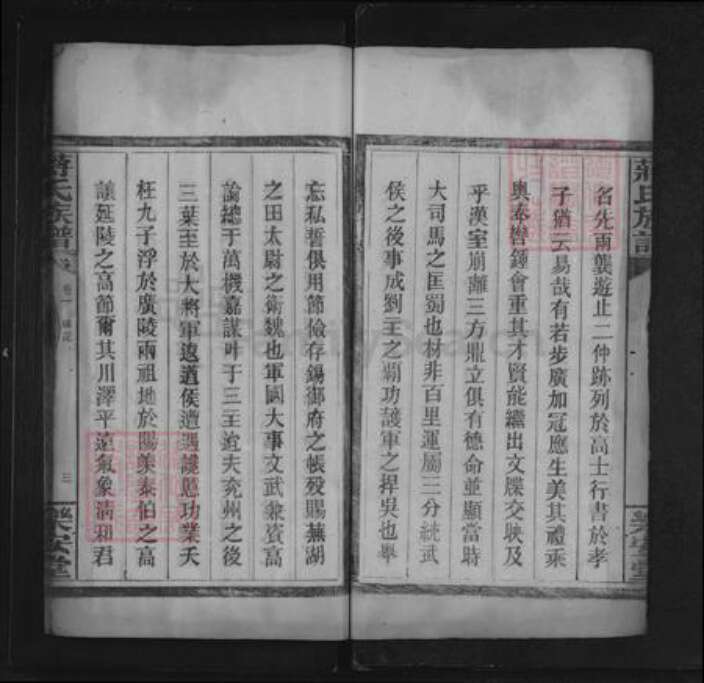 名先兩龔遊止二仲跡列於高士行書於孝
子猶云易哉有若步廣加冠應生美其禮乘
輿泰轡鍾會重其才賢能繼出文牒交映及
乎漢室崩離三方鼎立俱有德命並顯當時
大司馬之匡蜀也材非百里運屬三分統武
侯之後事成劉王之霸功護軍之捍吳也舉
忘私誓俱用節儉存錫御府之帳歿賜蕪湖
之田太尉之衛魏也軍國大事文武兼資高
論總于萬機嘉謀叶于三王逾夫兗州之後
三葉至於大將軍逡遒侯遭遇讒慝功業夭
枉九子浮於廣陵兩祖地於陽羨泰伯之高
讓延陵之高節爾其川澤平遠氣象清和君
蔣氏族譜
卷一
三
樂安堂